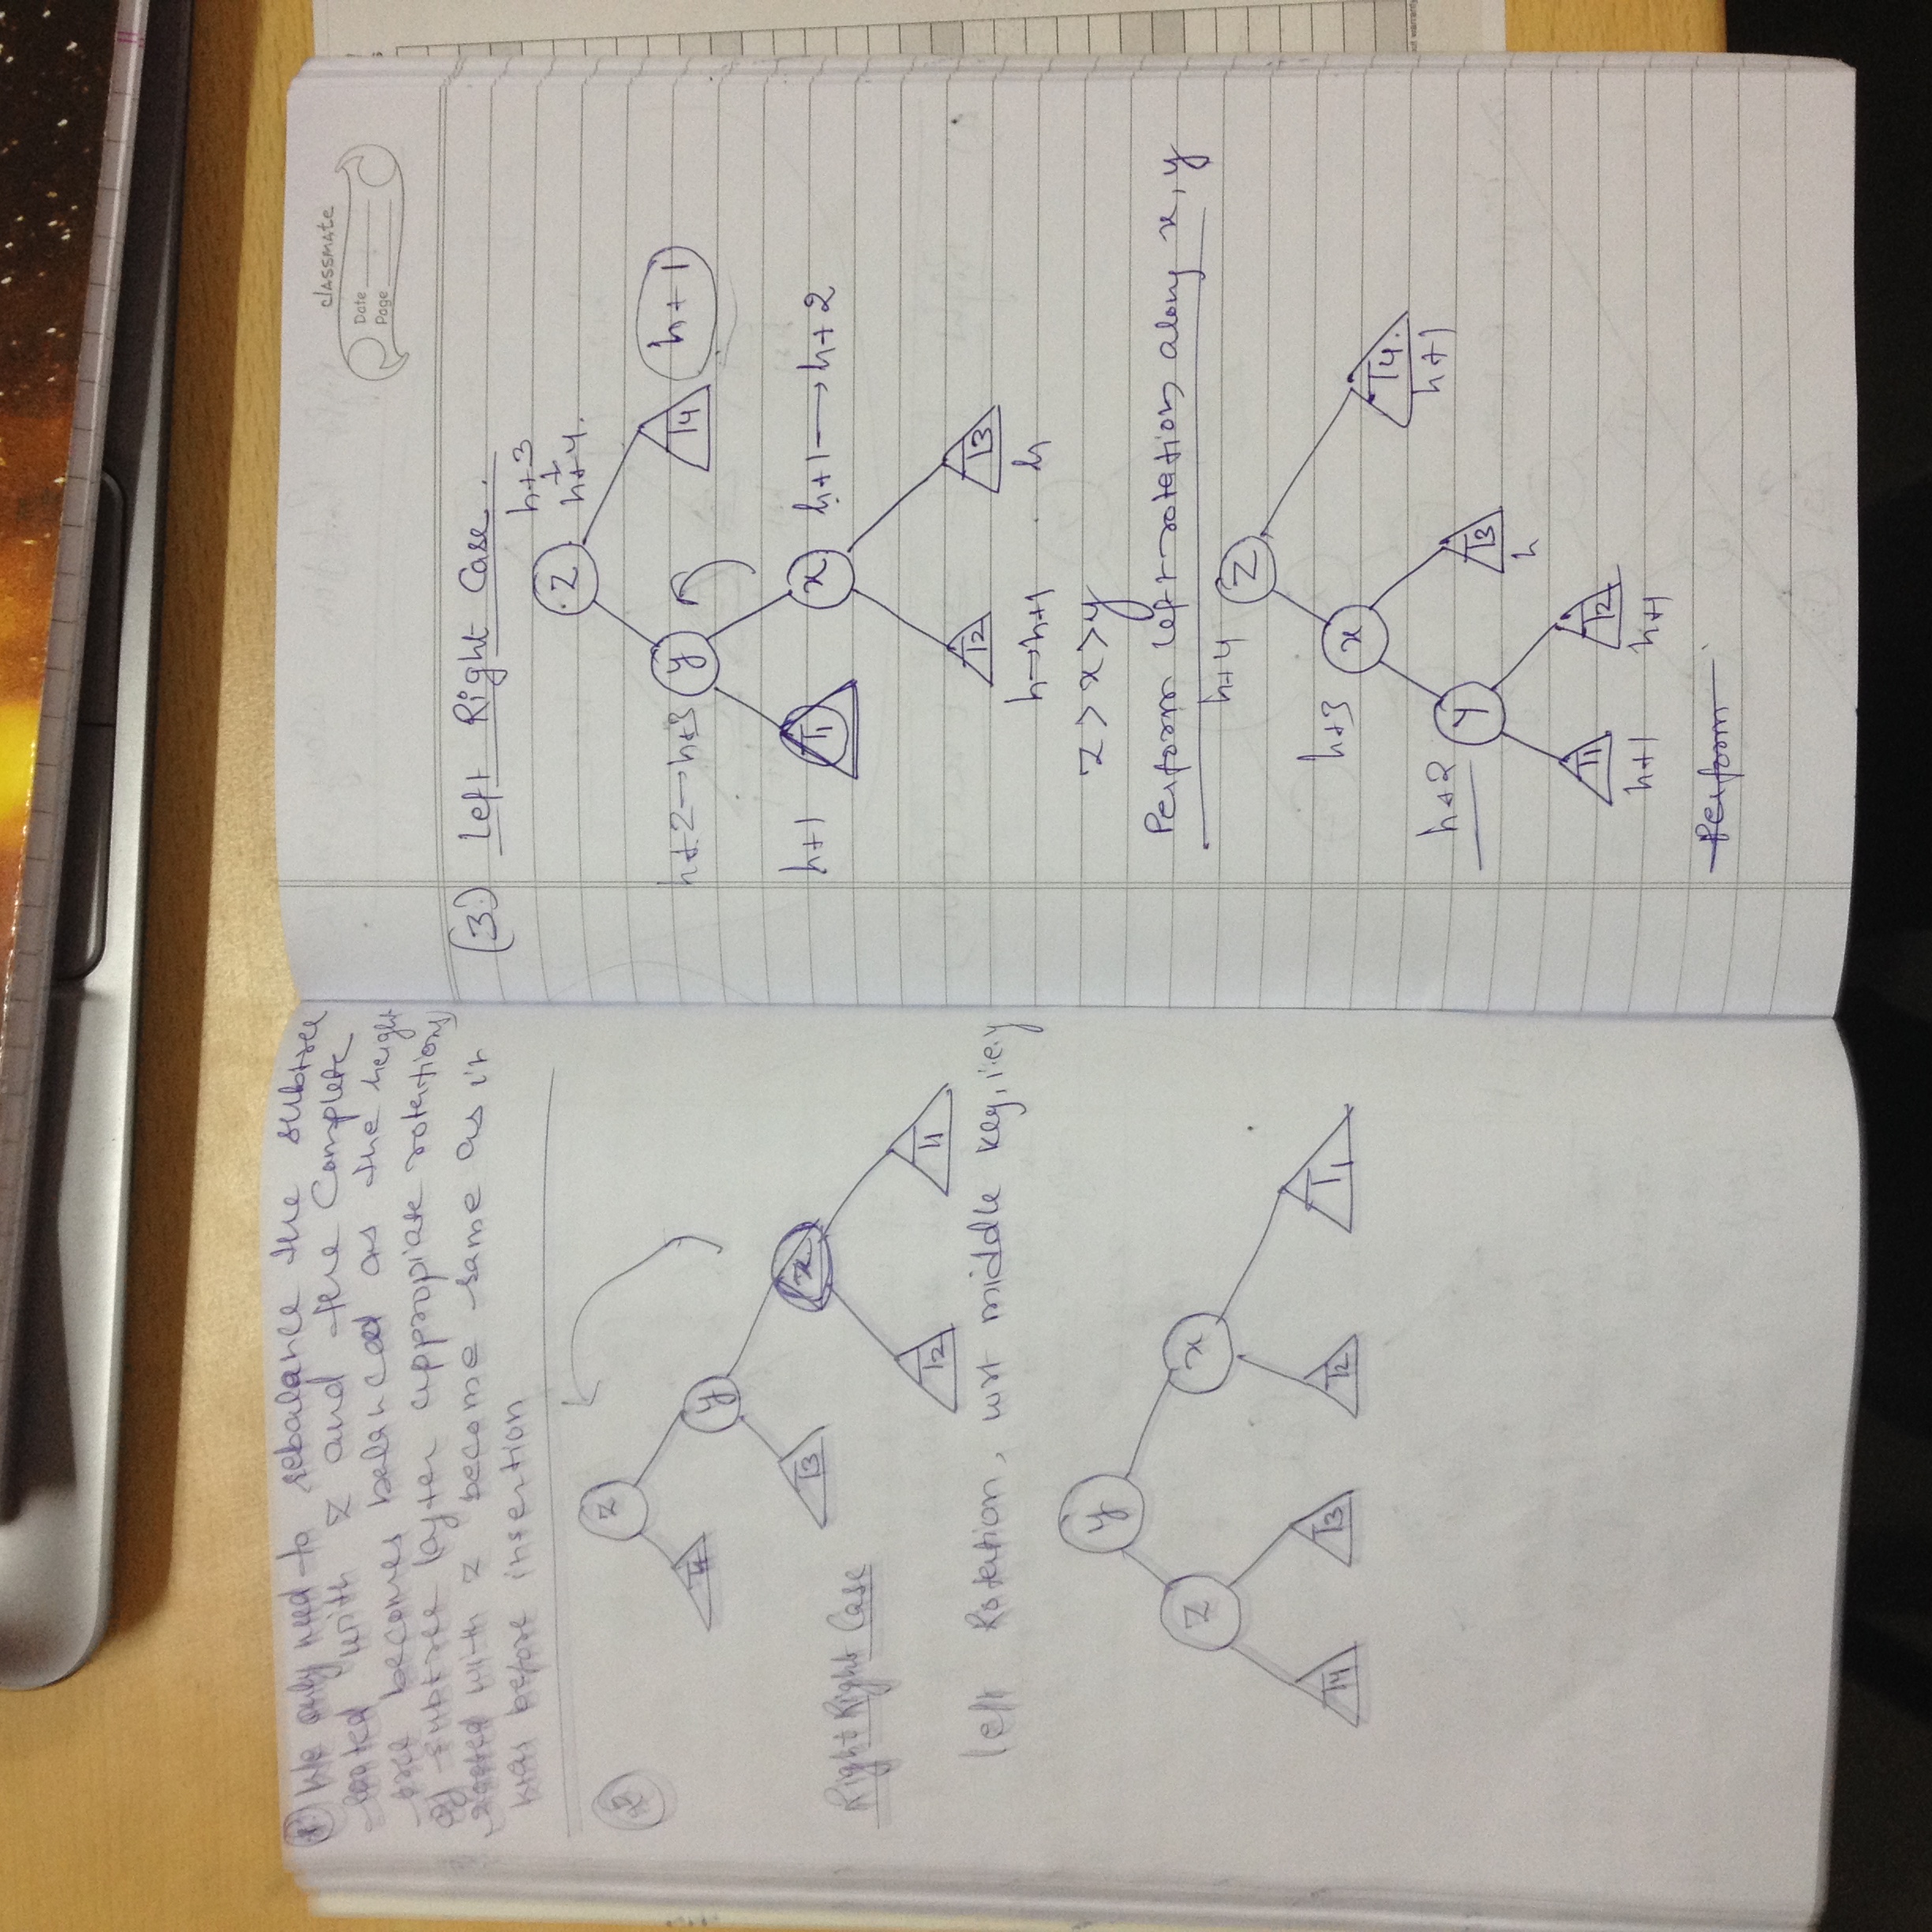 We only need to rebalance the subtree
rooted with z and the Complete
tree becomes balanced as the height
of subtree (after appropiate rotations)
rooted with z become same as in
was before insertion
2
Right Right Case
z
T4
y
T3
x
T2
T1
left Rotation, wrt middle key, i.e, y
y
z
x
T4
T3
T2
T1
classmate
Date
Page
(3.) Left Right Case.
h+3
h+4.
z
h+2→h+3
y
T4
h+1
h+1
T1
x
h+1→h+2
T2
T3
h→h+1
h
z>x>y
Perform left rotation along x, y
h+4
z
h+3
x
T4
h+1
h+2
y
T3
h
T1
T2
h+1
h+1
Perform